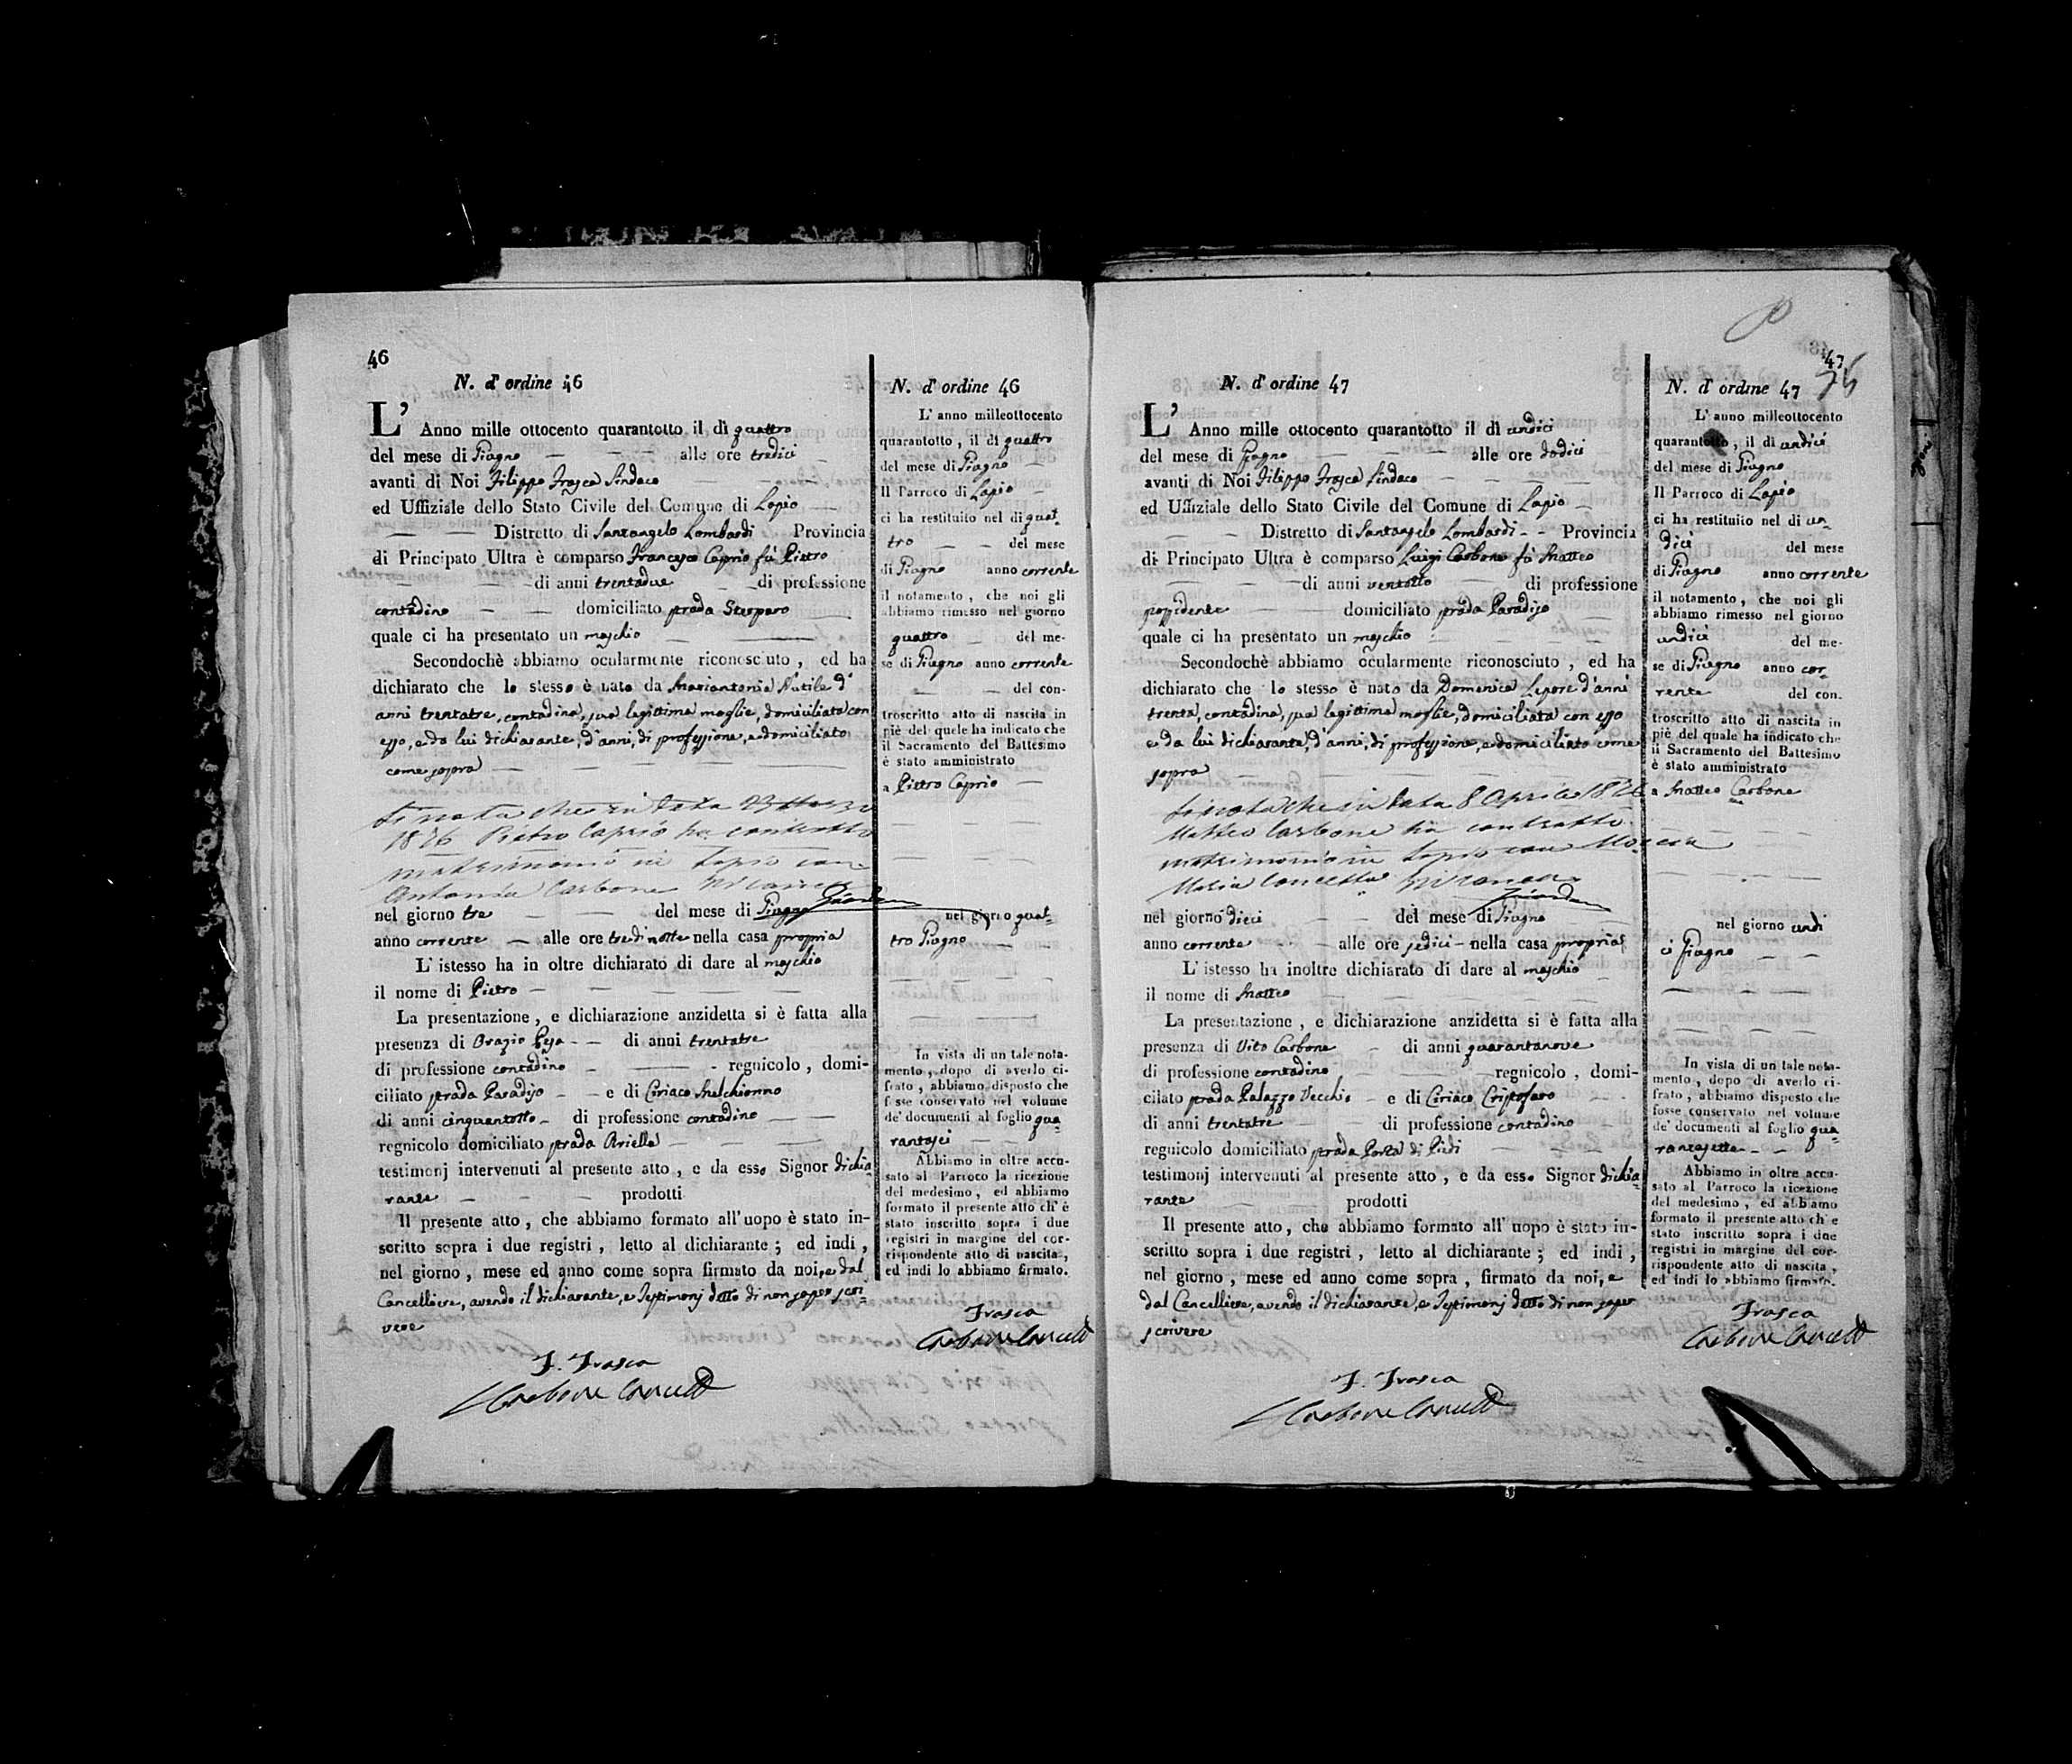 46
N. d' ordine 46
L' Anno mille ottocento quarantotto il dì quattro
del mese di Giugno alle ore tredici
avanti di Noi Filippo Frasca Sindaco
ed Uffiziale dello Stato Civile del Comune di Lapio
Distretto di Santangelo Lombardi Provincia
di Principato Ultra è comparso Francesco Caprio fù Pietro
di anni trentadue di professione
contadino domiciliato strada Sterparo
quale ci ha presentato un maschio
Secondochè abbiamo ocularmente riconosciuto, ed ha
dichiarato che lo stesso è nato da Mariantonia Nutile d'
anni trentatre, contadina, sua legittima moglie, domiciliata con
esso, e da lui dichiarante, d'anni, di professione, e domiciliato
come sopra
Si nota che in data 23 Marzo
1876 Pietro Caprio ha contratto
matrimonio in Lapio con
Antonia Carbone
nel giorno tre del mese di Giugno
anno corrente alle ore tredi notte nella casa propria
L' istesso ha in oltre dichiarato di dare al maschio
il nome di Pietro
La presentazione, e dichiarazione anzidetta si è fatta alla
presenza di Orazio Pesa di anni trentatre
di professione contadino regnicolo, domi-
ciliato strada Paradiso e di Ciriaco Melchionno
di anni cinquantotto di professione contadino
regnicolo domiciliato strada Ariella
testimonj intervenuti al presente atto, e da esso Signor dichia-
rante prodotti
Il presente atto, che abbiamo formato all'uopo è stato in-
scritto sopra i due registri, letto al dichiarante; ed indi,
nel giorno, mese ed anno come sopra firmato da noi, e dal
Cancelliere, avendo il dichiarante, e Testimonj detto di non saper scri-
vere
F. Frasca
Carbone Cancell
N. d' ordine 46
L' anno milleottocento
quarantotto, il dì quattro
del mese di Giugno
Il Parroco di Lapio
ci ha restituito nel dì quat-
tro del mese
di Giugno anno corrente
il notamento, che noi gli
abbiamo rimesso nel giorno
quattro del me-
se di Giugno anno corrente
del con-
troscritto atto di nascita in
piè del quele ha indicato che
il Sacramento del Battesimo
è stato amministrato
a Pietro Caprio
nel giorno quat-
tro Giugno
In vista di un tale nota-
mento, dopo di averlo ci-
frato, abbiamo disposto che
fosse conservato nel volume
de' documenti al foglio qua-
rantasei
Abbiamo in oltre accu-
sato al Parroco la ricezione
del medesimo, ed abbiamo
formato il presente atto ch' è
stato inscritto sopra i due
registri in margine del cor-
rispondente atto di nascita,
ed indi lo abbiamo firmato.
Frasca
Carbone Cancell
47
75
N. d' ordine 47
L' Anno mille ottocento quarantotto il dì undici
del mese di Giugno alle ore dodici
avanti di Noi Filippo Frasca Sindaco
ed Uffiziale dello Stato Civile del Comune di Lapio
Distretto di Santangelo Lombardi Provincia
di Principato Ultra è comparso Luigi Carbone fù Matteo
di anni ventotto di professione
possidente domiciliato strada Paradiso
quale ci ha presentato un maschio
Secondochè abbiamo ocularmente riconosciuto, ed ha
dichiarato che lo stesso è nato da Domenica Lepore d'anni
trenta, contadina, sua legittima moglie, domiciliata con esso
e da lui dichiarante, d'anni, di professione, e domiciliato come
sopra
Si nota che in data 8 Aprile 1876
Matteo Carbone ha contratto
matrimonio in Lapio con Moccia
Maria Concetta
nel giorno dieci del mese di Giugno
anno corrente alle ore sedici nella casa propria
L' istesso ha inoltre dichiarato di dare al maschio
il nome di Matteo
La presentazione, e dichiarazione anzidetta si è fatta alla
presenza di Vito Carbone di anni quarantanove
di professione contadino regnicolo, domi-
cilato strada Palazzo Vecchio e di Ciriaco Cristofaro
di anni trentatre di professione contadino
regnicolo domiciliato strada Porta di Piedi
testimonj intervenuti al presente atto, e da esso Signor dichia-
rante prodotti
Il presente atto, che abbiamo formato all' uopo è stato in-
scritto sopra i due registri, letto al dichiarante; ed indi,
nel giorno, mese ed anno come sopra, firmato da noi, e
dal Cancelliere, avendo il dichiarante, e Testimonj detto di non saper
scrivere
F. Frasca
Carbone Cancell
N. d' ordine 47
L' anno milleottocento
quarantotto, il dì undici
del mese di Giugno
Il Parroco di Lapio
ci ha restituito nel dì un-
dici del mese
di Giugno anno corrente
il notamento, che noi gli
abbiamo rimesso nel giorno
undici del me-
se di Giugno anno cor-
rente del con-
troscritto atto di nascita in
piè del quale ha indicato che
il Sacramento del Battesimo
è stato amministrato
a Matteo Carbone
nel giorno undi
ci Giugno
In vista di un tale nota-
mento, dopo di averlo ci-
frato, abbiamo disposto che
fosse conservato nel volume
de' documenti al foglio qua-
rantasette
Abbiamo in oltre accu-
sato al Parroco la ricezione
del medesimo, ed abbiamo
formato il presente atto ch' e
stato inscritto sopra i due
registri in margine del cor-
rispondente atto di nascita,
ed indi lo abbiamo firmato.
Frasca
Carbone Cancell